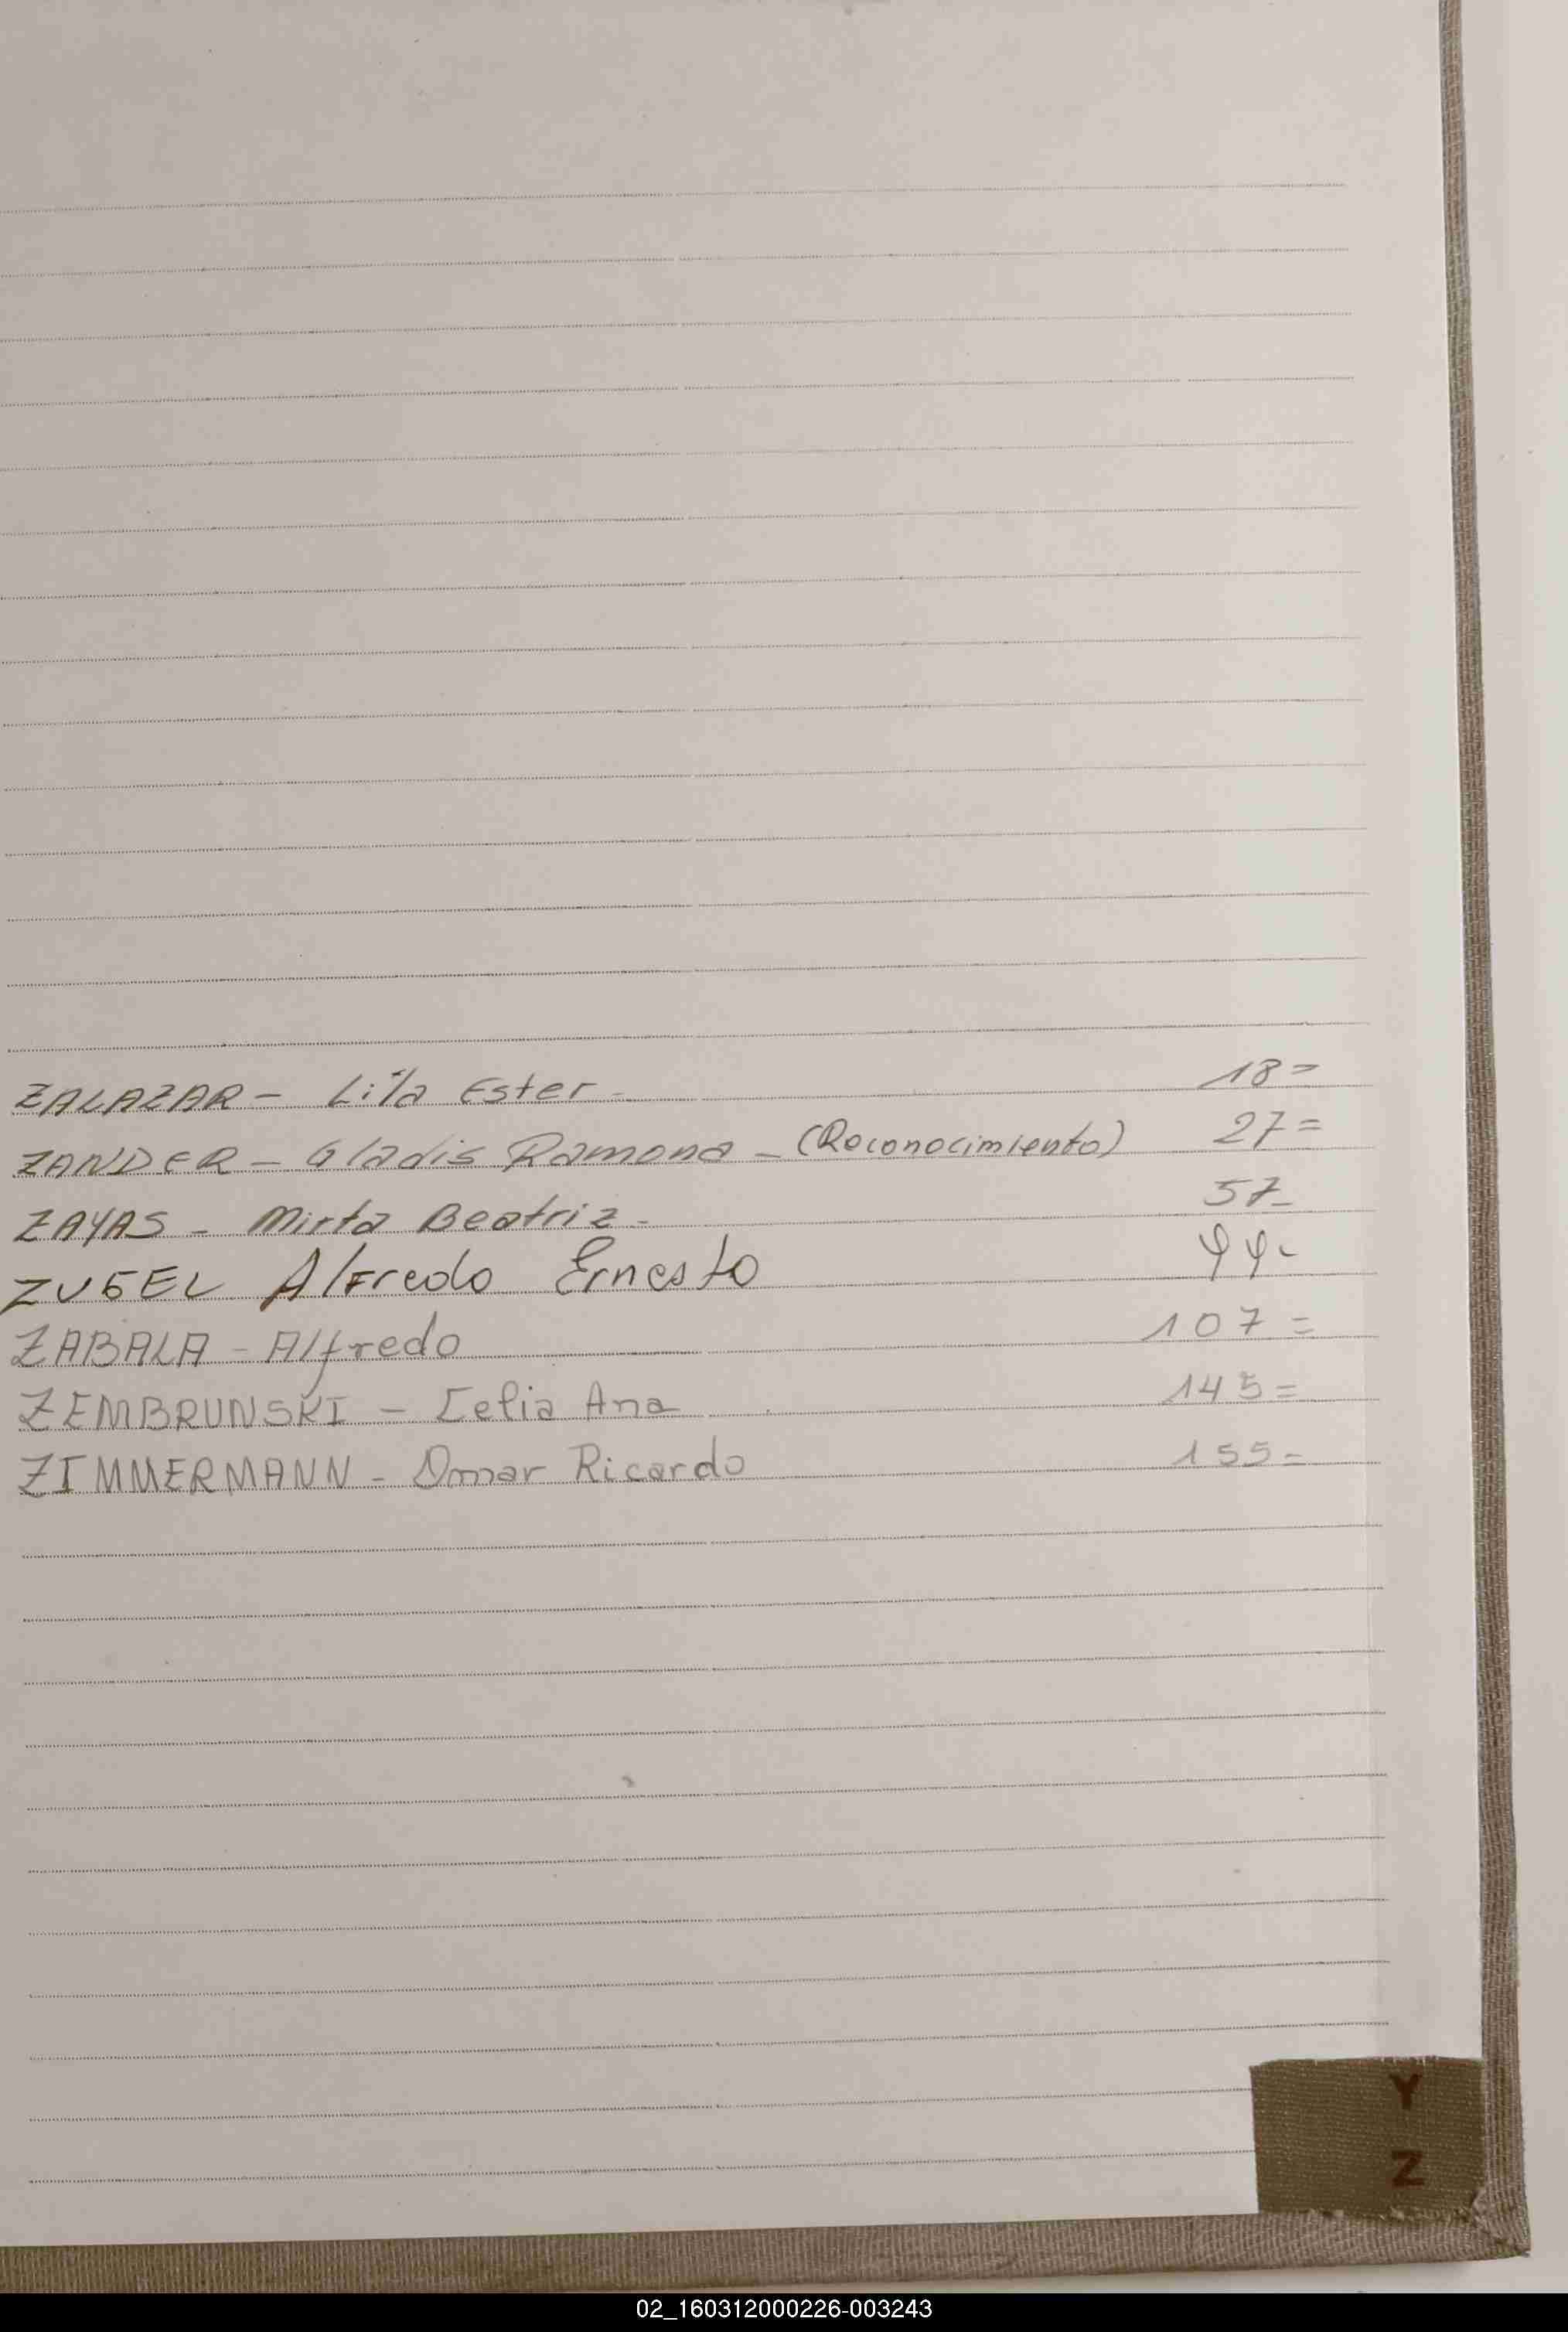 ZALAZAR - Lila Ester - 18=
ZANDER - Gladis Ramona - (Reconocimiento) 27=
ZAYAS - Mirta Beatriz - 57-
ZUGEL Alfredo Ernesto 99-
ZABALA - Alfredo 107=
ZEMBRUNSKI - Celia Ana 145=
ZIMMERMANN - Omar Ricardo 155=
Y
Z
02_160312000226-003243